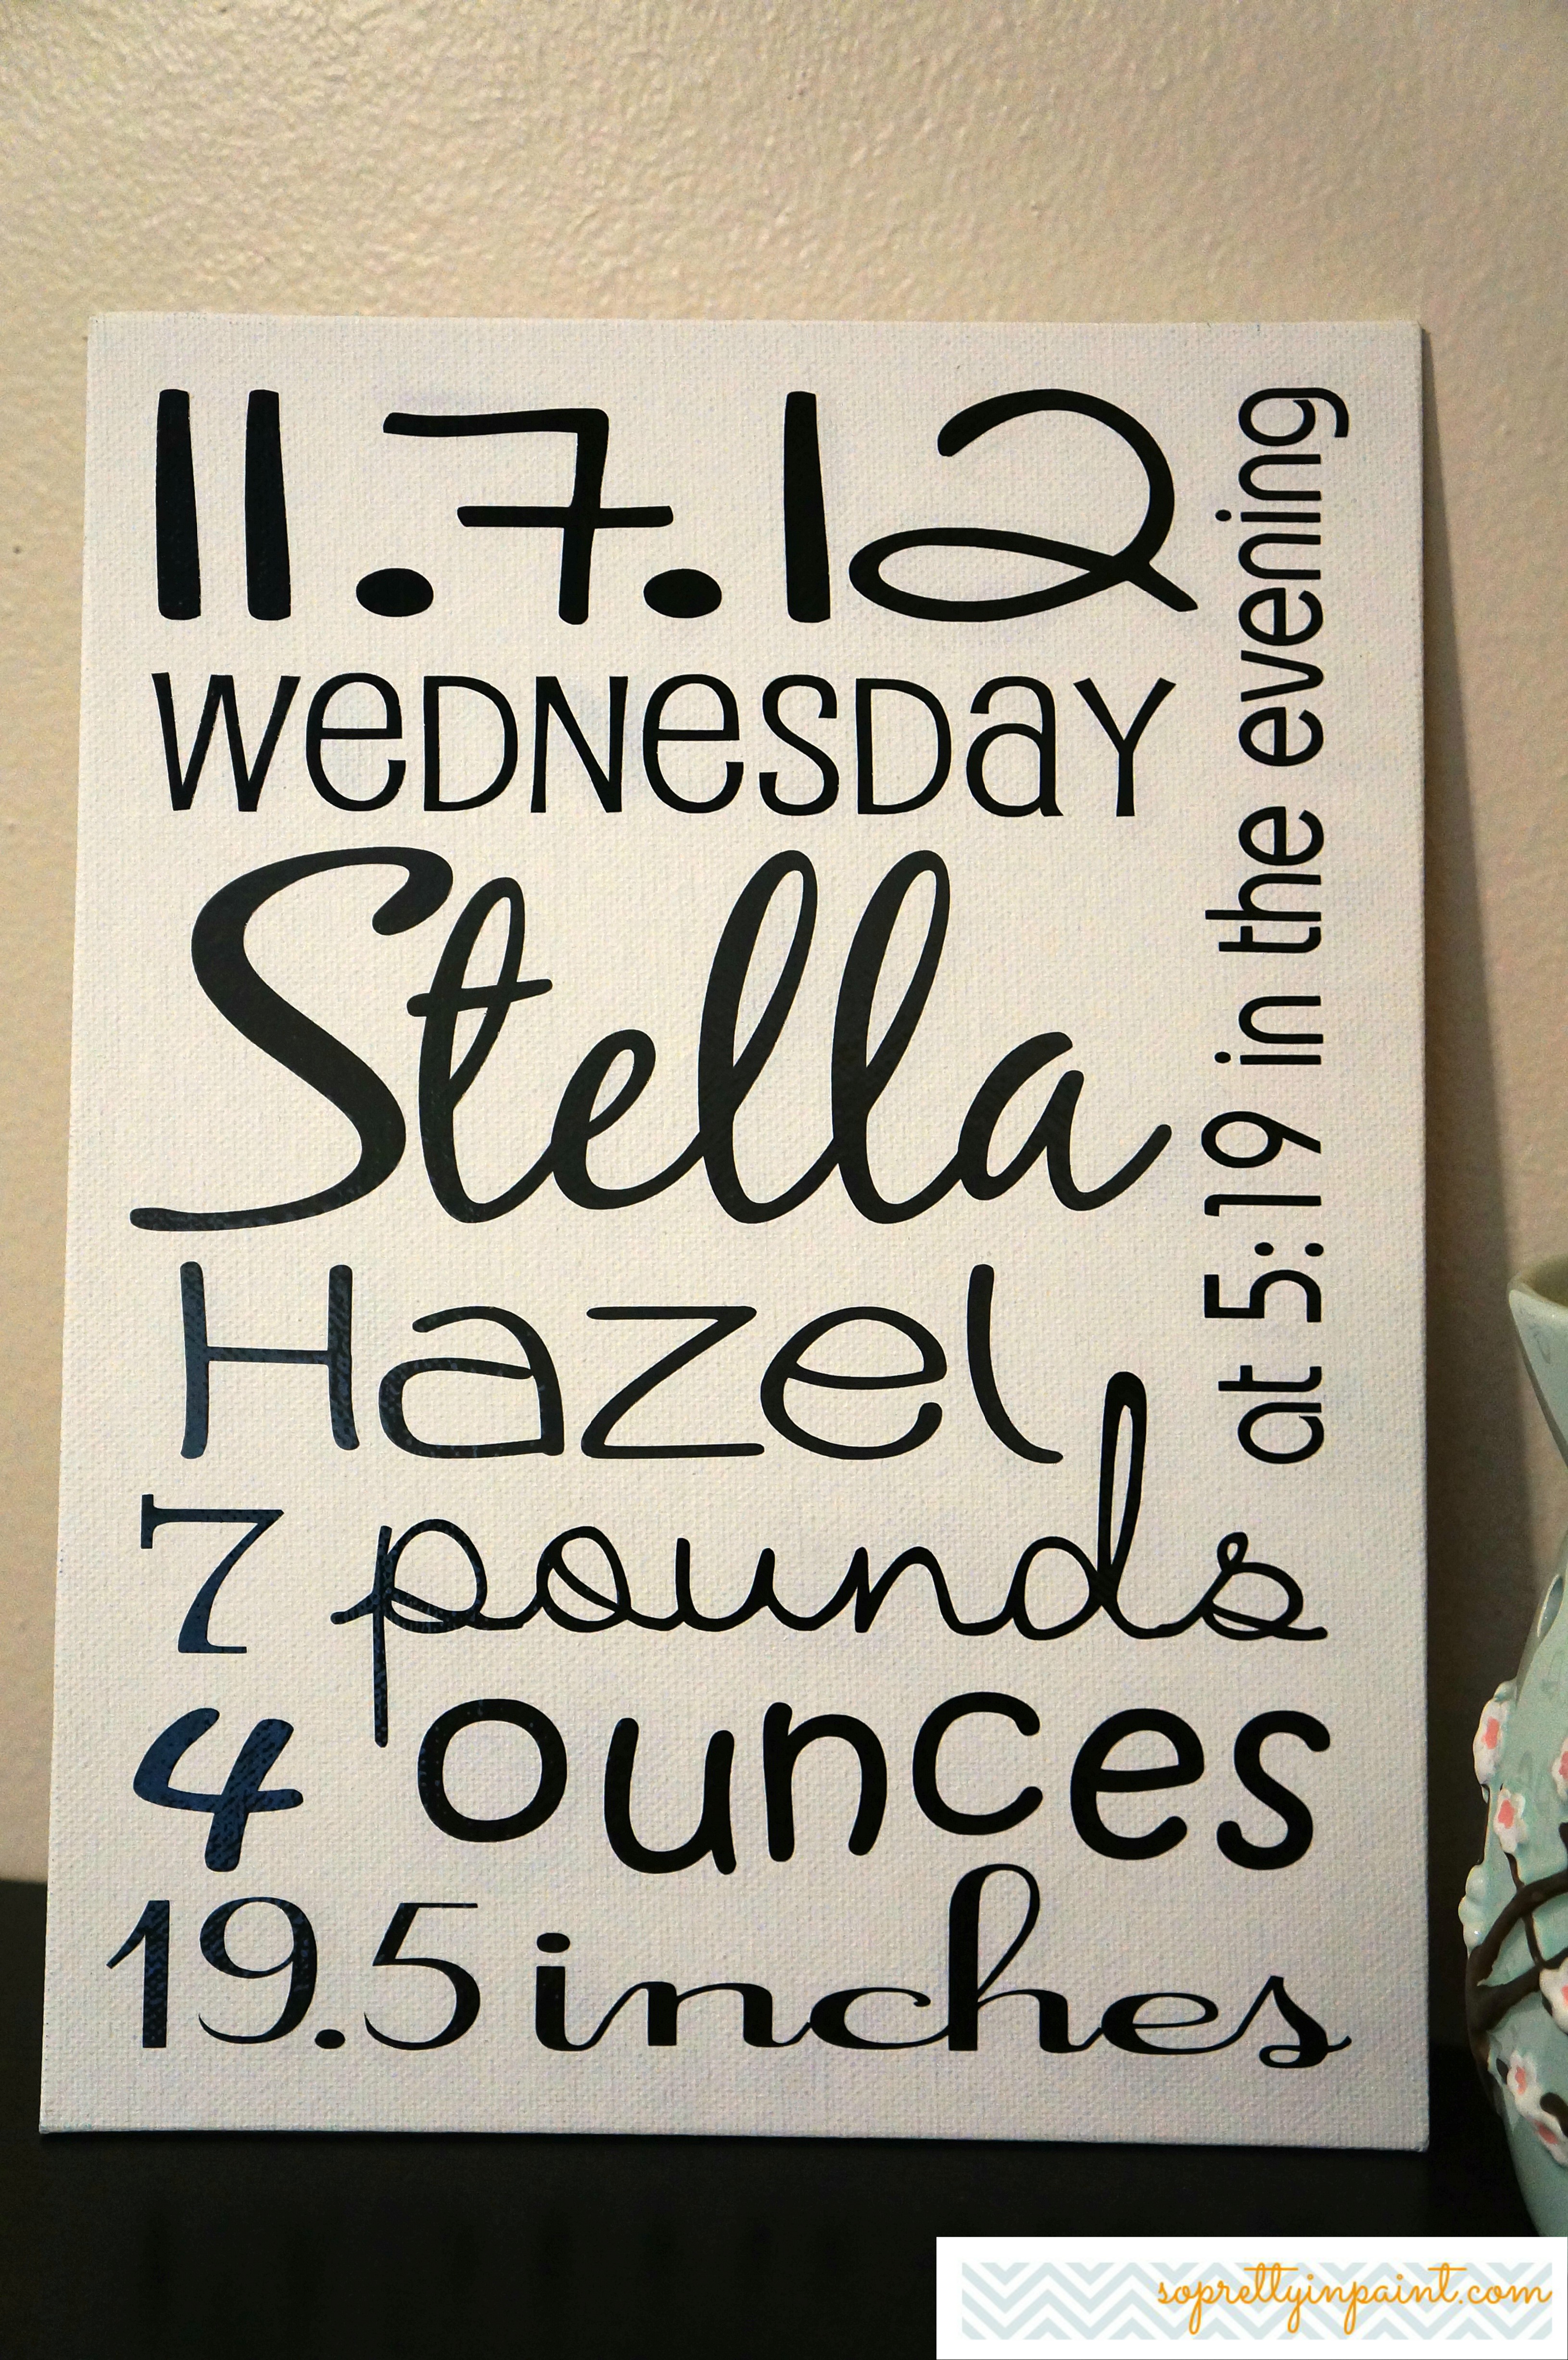 11.7.12
WeDNesDaY
Stella
Hazel
7 pounds
4 ounces
19.5 inches
at 5:19 in the evening
soprettyinpaint.com